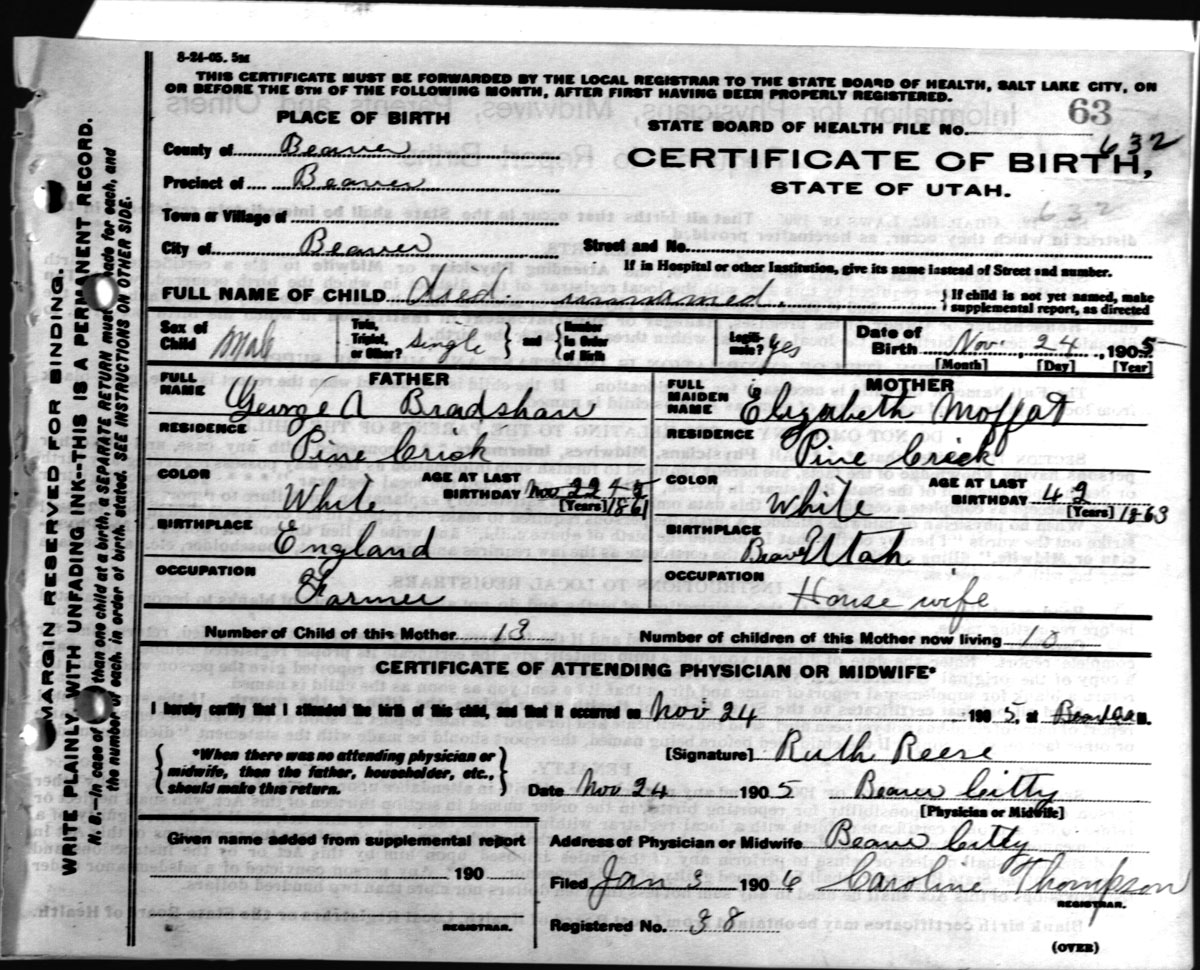 8-24-05. 5M
THIS CERTIFICATE MUST BE FORWARDED BY THE LOCAL REGISTRAR TO THE STATE BOARD OF HEALTH, SALT LAKE CITY, ON
OR BEFORE THE 5TH OF THE FOLLOWING MONTH, AFTER FIRST HAVING BEEN PROPERLY REGISTERED.
PLACE OF BIRTH
STATE BOARD OF HEALTH FILE No. 63
632
County of Beaver
CERTIFICATE OF BIRTH,
Precinct of Beaver
STATE OF UTAH.
Town or Village of
632
City of Beaver
Street and No.
If in Hospital or other Institution, give its name instead of Street and number.
FULL NAME OF CHILD unnamed. } If child is not yet named, make supplemental report, as directed
Sex of Child Male Twin, Triplet, or Other? Single } and { Number in Order of Birth Legiti- mate? yes Date of Birth Nov. 24, 1905
[Month] [Day] [Year]
FATHER
FULL NAME George A Bradshaw
RESIDENCE Pine Crick
COLOR White AGE AT LAST BIRTHDAY Nov 22 45
[Years] 1861
BIRTHPLACE England
OCCUPATION Farmer
MOTHER
FULL MAIDEN NAME Elizabeth Moffat
RESIDENCE Pine Crick
COLOR White AGE AT LAST BIRTHDAY 42
[Years] 1863
BIRTHPLACE Beaver Utah
OCCUPATION House wife
Number of Child of this Mother 13 Number of children of this Mother now living 10
CERTIFICATE OF ATTENDING PHYSICIAN OR MIDWIFE*
I hereby certify that I attended the birth of this child, and that it occurred on Nov 24 1905, at M.
{ *When there was no attending physician or midwife, then the father, householder, etc., should make this return. }
[Signature] Ruth Reese
Date Nov 24 1905 Beaver Citty
[Physician or Midwife]
Given name added from supplemental report
190
REGISTRAR.
Address of Physician or Midwife Beaver Citty
Filed Jan 3 1906 Caroline Thompson
REGISTRAR.
Registered No. 38
(OVER)
MARGIN RESERVED FOR BINDING.
WRITE PLAINLY WITH UNFADING INK--THIS IS A PERMANENT RECORD.
N. B.--In case of more than one child at a birth, a SEPARATE RETURN must be made for each, and
the number of each, in order of birth, stated. SEE INSTRUCTIONS ON OTHER SIDE.